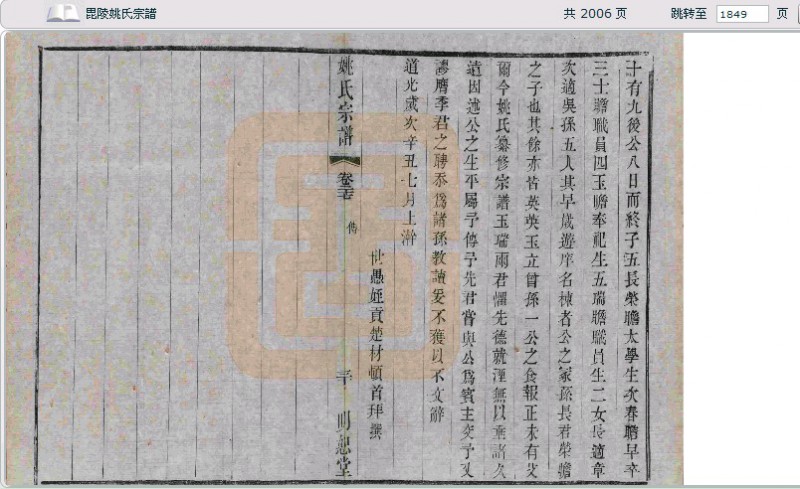 毘陵姚氏宗譜
共 2006 页
跳转至 1849 页
十有九後公八日而終子五長榮瞻太學生次春瞻早卒
三士瞻職員四玉瞻奉祀生五瑞瞻職員生二女長適章
次適吳孫五人其早歲遊庠名棟者公之冢孫長君榮瞻
之子也其餘亦皆英英玉立曾孫一公之食報正未有艾
爾今姚氏纂修宗譜玉瑞兩君懼先德就湮無以垂諸久
遠因述公之生平屬予傳予先君嘗與公爲賓主交予又
謬膺季君之聘忝爲諸孫教讀爰不獲以不文辭
道光歲次辛丑七月上澣
世愚姪貢楚材頓首拜撰
姚氏宗譜
卷
傳
明恕堂